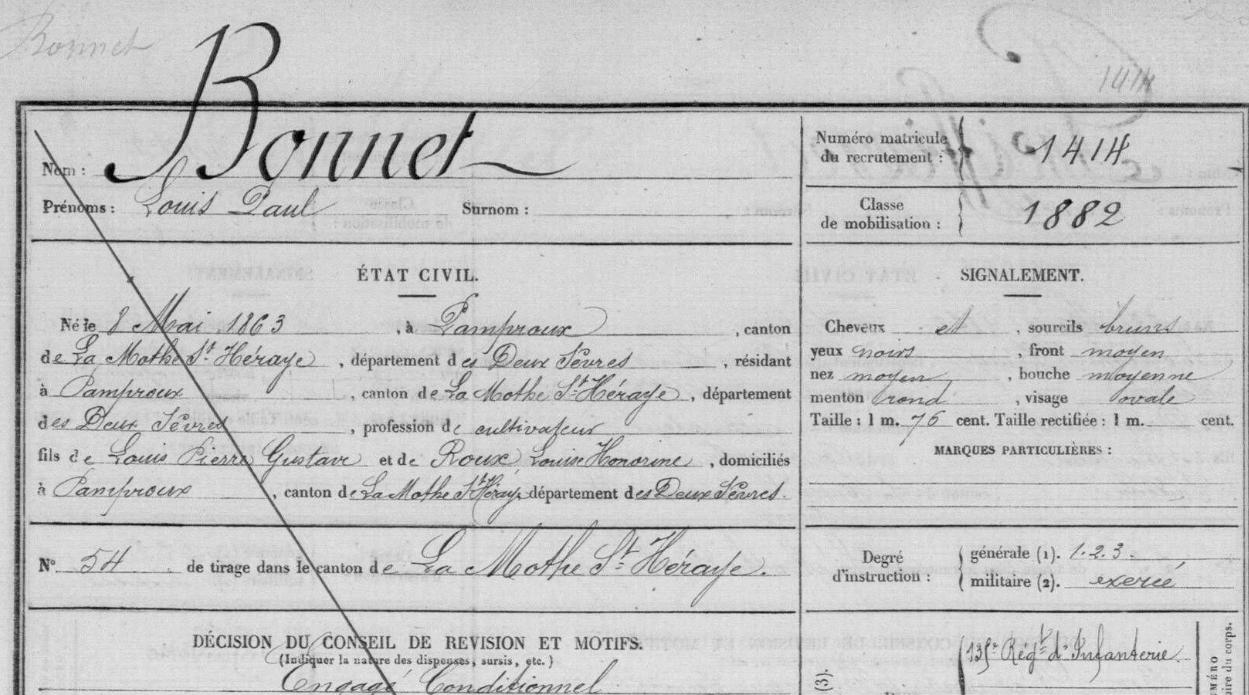 Bonnet
1414
Nom : Bonnet
Prénoms : Louis Paul Surnom :
Numéro matricule du recrutement : 1414
Classe de mobilisation : 1882
ÉTAT CIVIL.
Né le 8 Mai 1863, à Pamproux, canton
de La Mothe St Héraye, département des Deux Sèvres, résidant
à Pamproux, canton de La Mothe St Héraye, département
des Deux Sèvres, profession de cultivateur
fils de Louis Pierre Gustave et de Roux Louise Honorine, domiciliés
à Pamproux, canton de La Mothe St Héraye département des Deux Sèvres.
SIGNALEMENT.
Cheveux et, sourcils bruns
yeux noirs, front moyen
nez moyen, bouche moyenne
menton rond, visage ovale
Taille : 1 m. 76 cent. Taille rectifiée : 1 m. cent.
MARQUES PARTICULIÈRES :
N° 54 de tirage dans le canton de La Mothe St Héraye.
Degré d'instruction : générale (1). 1.2.3.
militaire (2). exercé
DÉCISION DU CONSEIL DE REVISION ET MOTIFS.
(Indiquer la nature des dispenses, sursis, etc.)
Engagé Conditionnel
135e Régt d'Infanterie
(3).